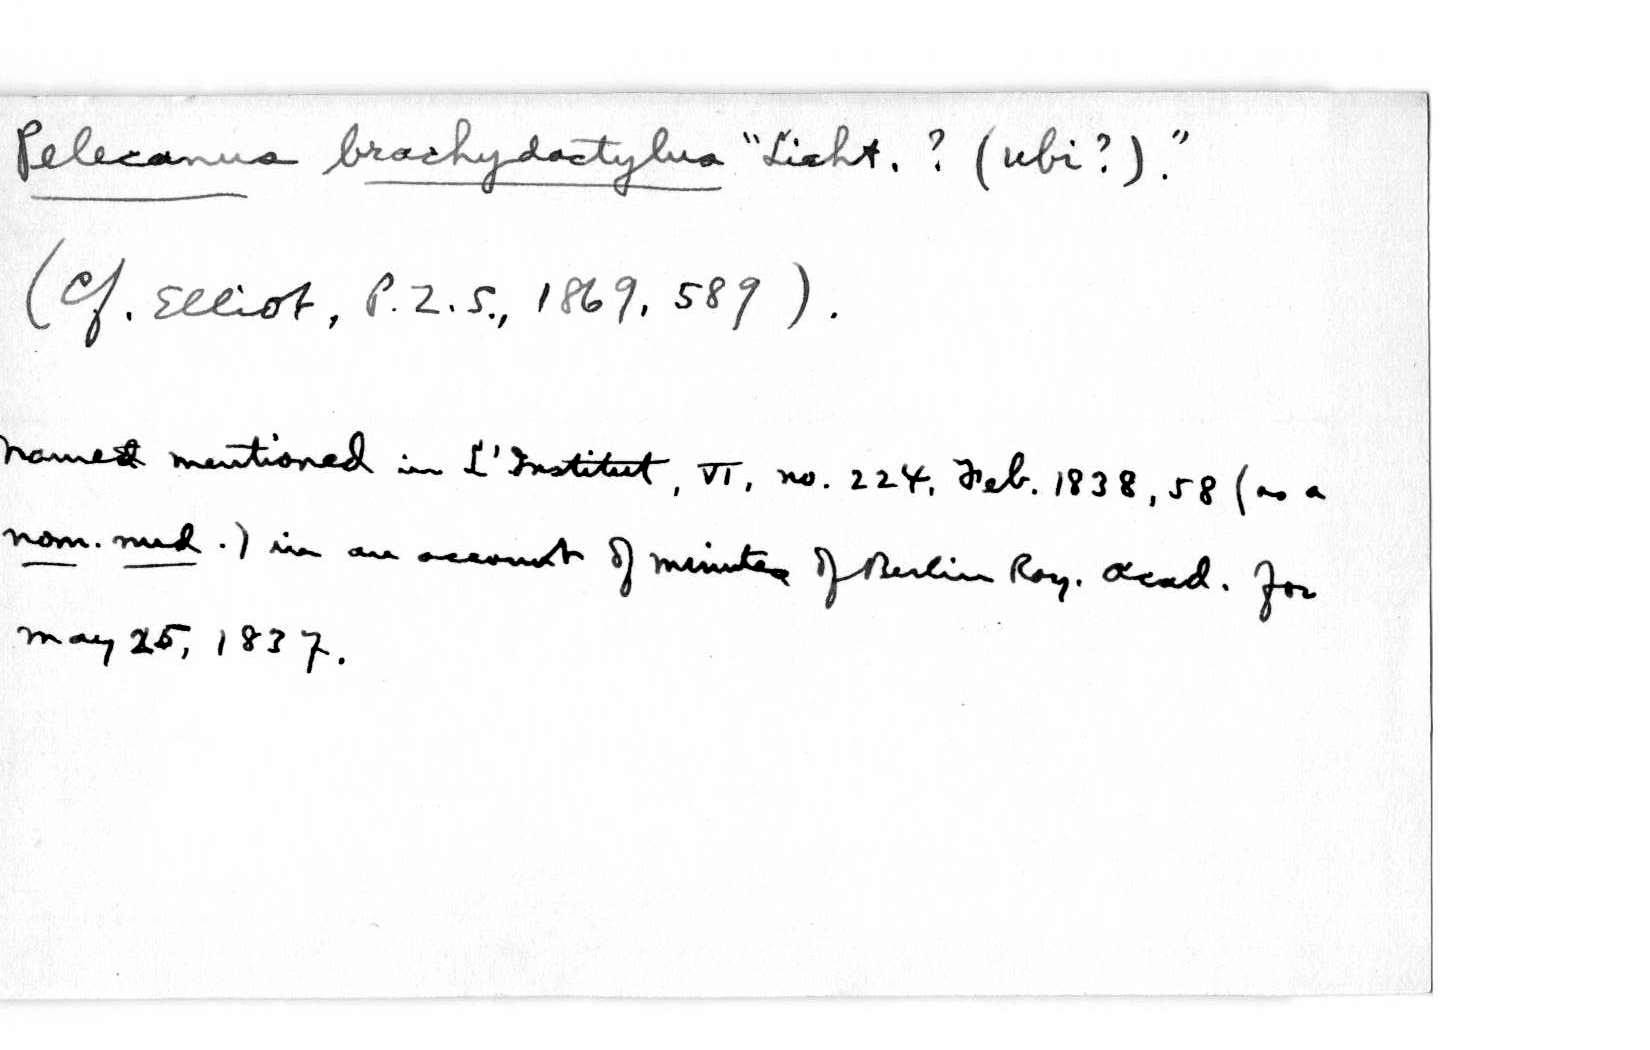 Pelecanus brachydactylus "Licht. ? (ubi?)."
(Cf. Elliot, P.Z.S., 1869, 589).
Name mentioned in L'Institut, VI, no. 224, Feb. 1838, 58 (as a
nom. nud.) in an account of minutes of Berlin Roy. Acad. for
May 25, 1837.